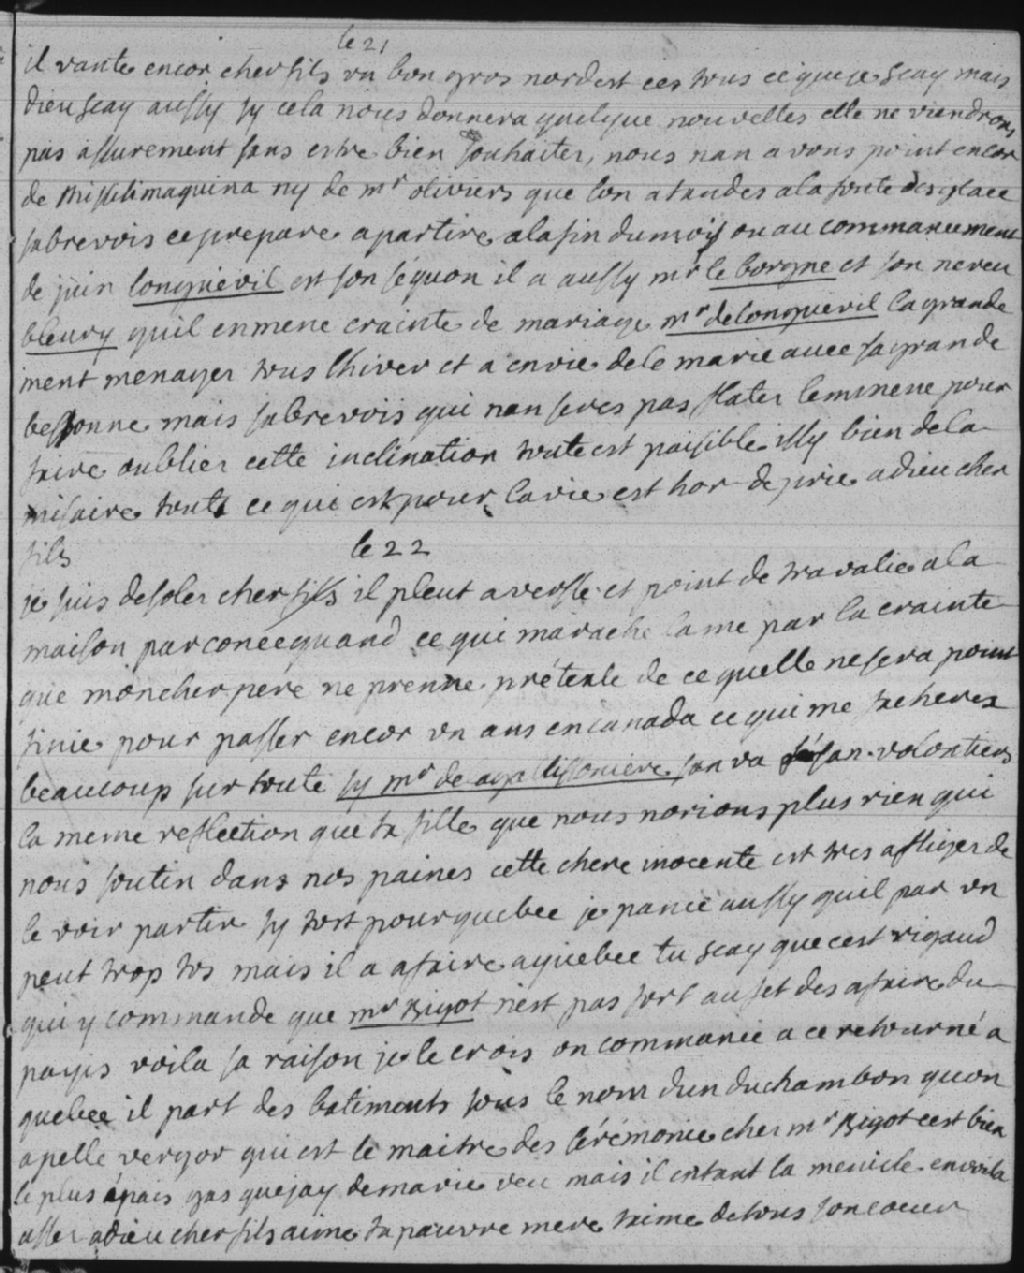 le 21
il vante encor cher fils un bon gros nordest ces tous ce que je scay mais
dieu scay aussy sy cela nous donnera quelque nouvelles elle ne viendrons
pas assurement sans estre bien souhaiter, nous nan avons point encor
de Missilimaquina ny de mr oliviers que lon atandes a la fonte des glace
sabrevois ce prepare a partire a la fin du mois ou au commancement
de juin longuevil est son segon il a aussy mr le borgne et son neveu
bleury quil enmene crainte de mariage mr de longuevil la grande
ment menager tous lhiver et a envie de le marie avec sa grande
bessonne mais sabrevois qui nan seres pas flater lemmene pour
faire oublier cette inclination toute est paisible issy bien de la
misaire toute ce qui est pour la vie est hor de prie adieu cher
fils
le 22
je suis desoler cher fils il pleut a verse et point de travalie a la
maison par concequand ce qui marache lame par la crainte
que mon cher pere ne prenne prétexte de ce quelle ne sera point
finie pour passer encor un ans en canada ce qui me facheres
beaucoup sur toute sy mr de la galissoniere san va fesan volontiers
la meme reflection que ta fille que nous norions plus rien qui
nous soutin dans nos paines cette chere inocente est tres afliger de
le voir partir sy tost pour quebec je pance aussy quil par un
peut trop tos mais il a afaire a quebec tu scay que cest rigaud
qui y commande que mr Bigot nest pas fort au fet des afaire du
payis voila sa raison je le crois on commance a ce retourné a
quebec il part des batiments sous le nom dun duchambon quon
apelle vergor qui est le maitre des cérémonie cher mr Bigot cest bien
le plus épais gas que jay de ma vie veu mais il entant la menicle en voila
asser adieu cher fils aime ta pauvre mere taime de tous son coeur